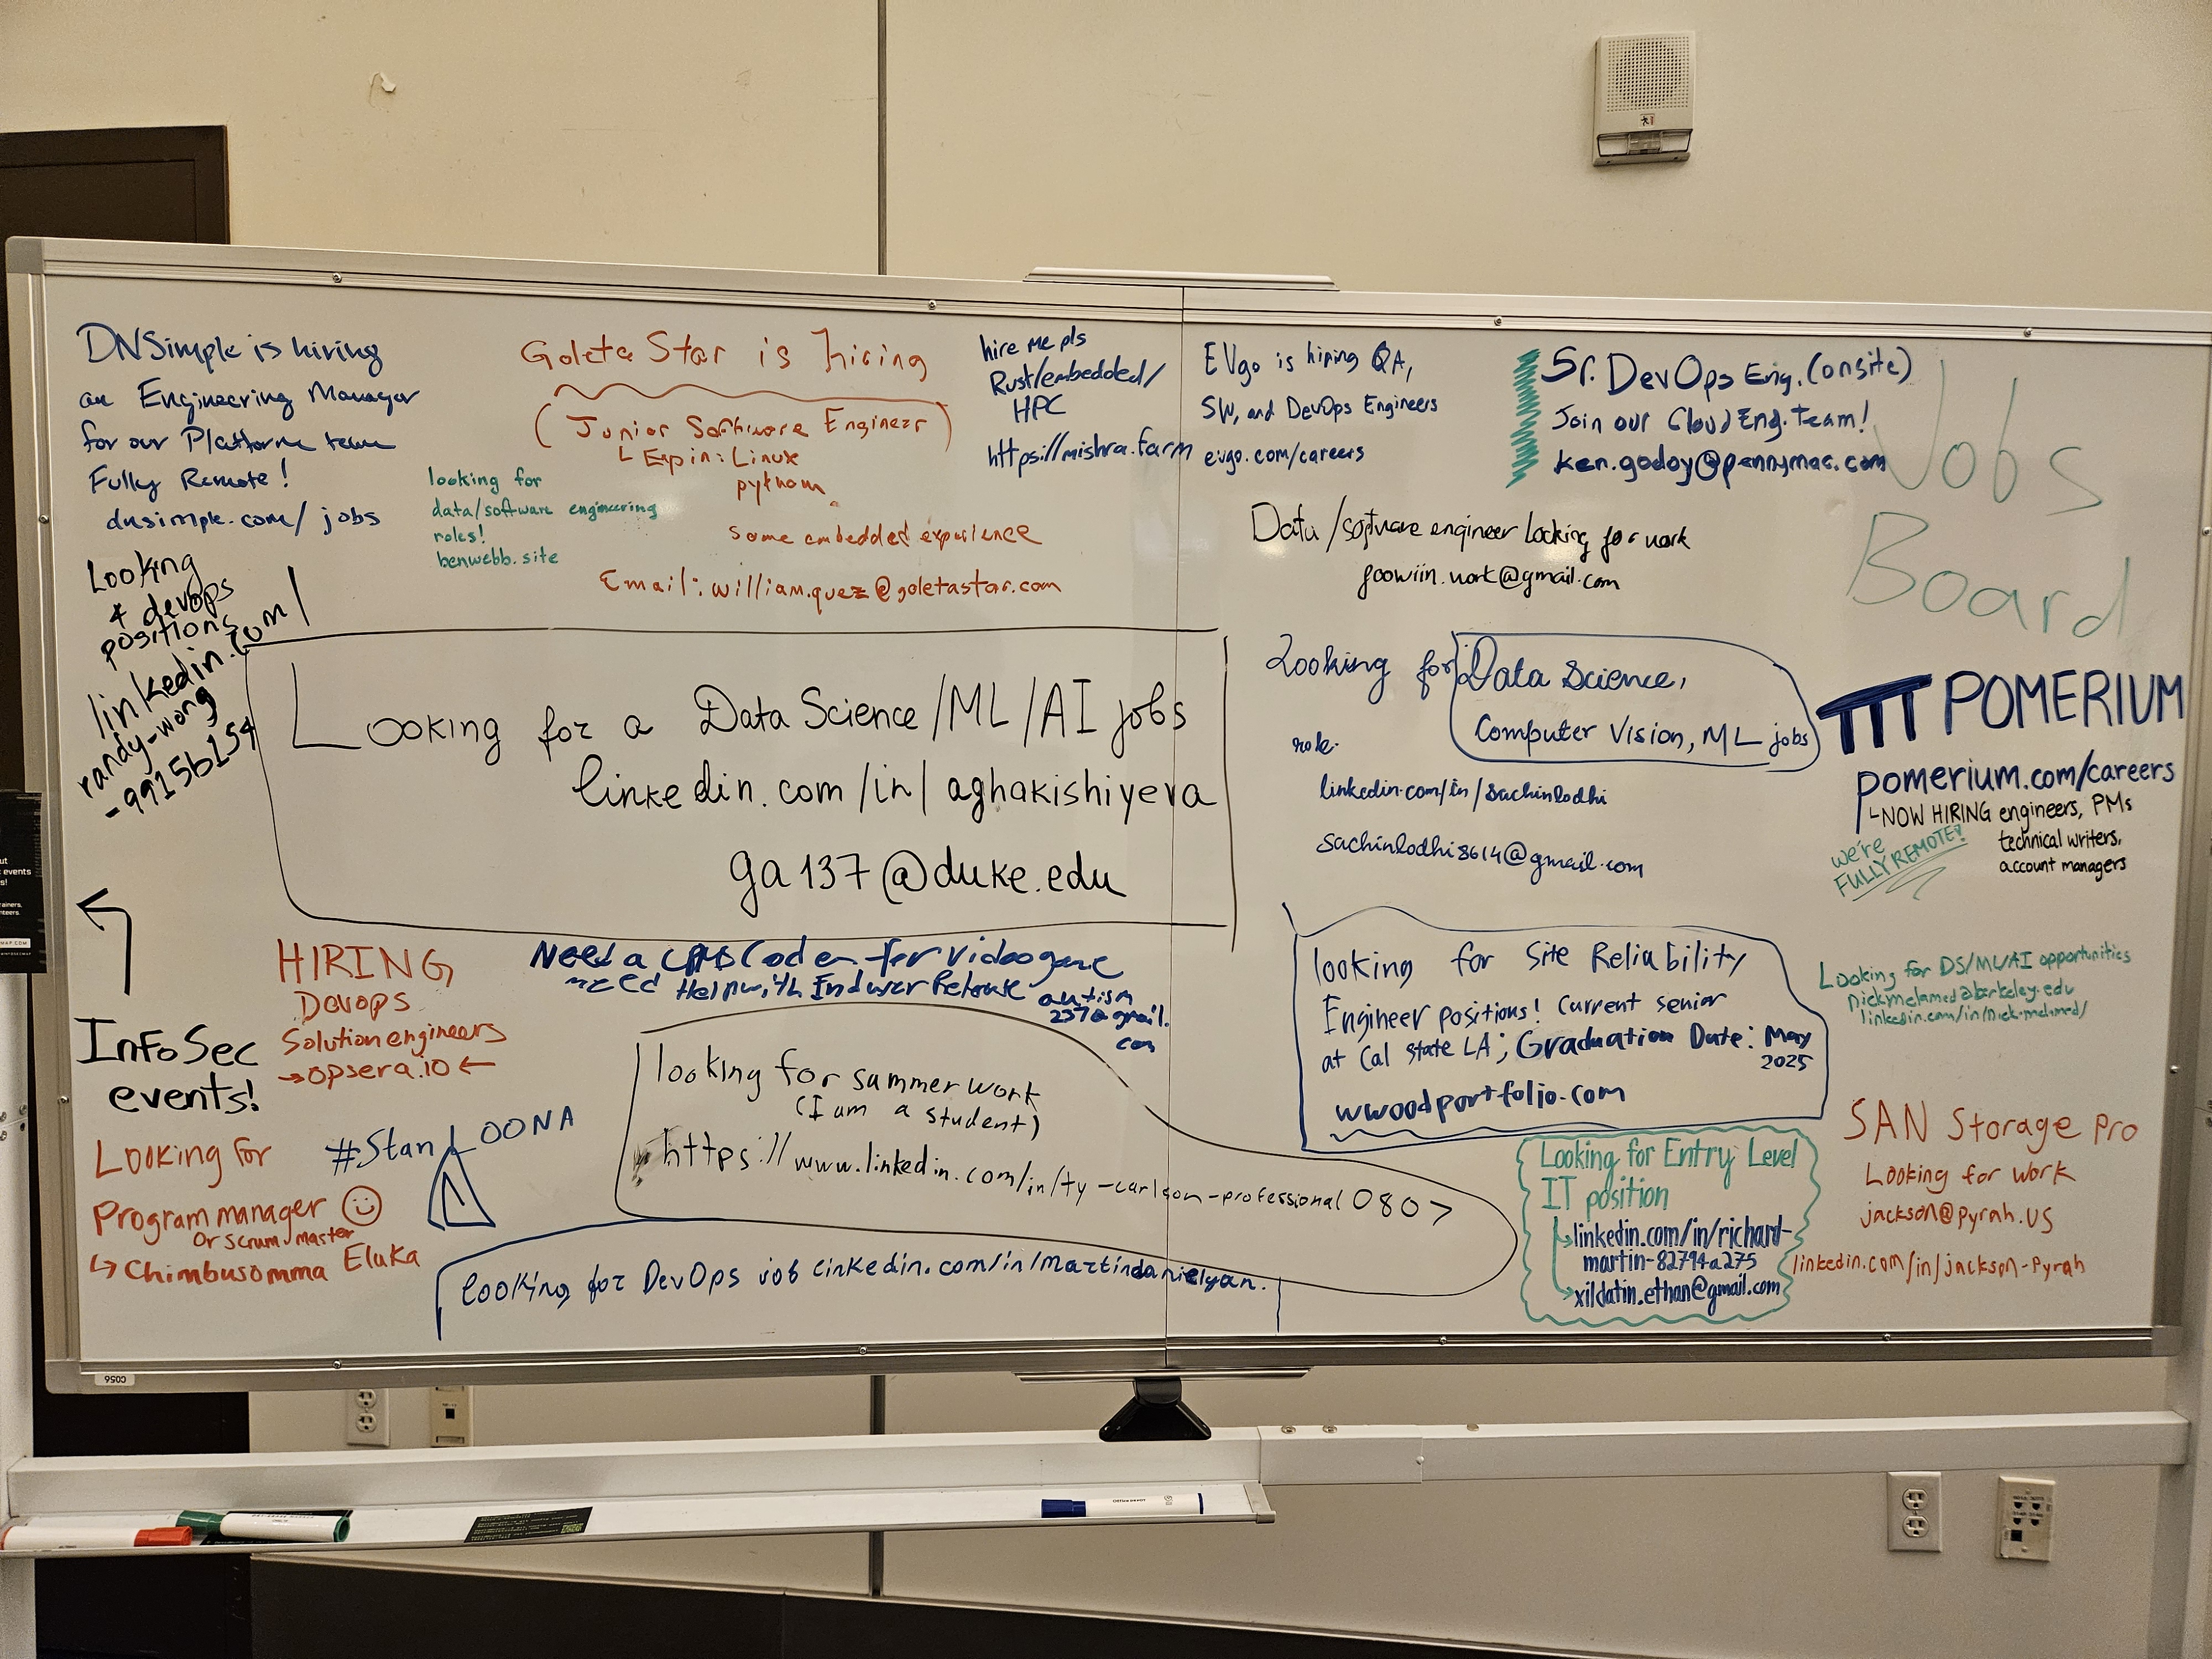 DNSimple is hiring
an Engineering Manager
for our Platform team
Fully Remote!
dnsimple.com/jobs
Goleta Star is hiring
(Junior Software Engineer)
Exp in: Linux
python
some embedded experience
Email: william.quez@goletastar.com
looking for
data/software engineering
roles!
benwebb.site
hire me pls
Rust/embedded/
HPC
https://mishra.farm
EVgo is hiring QA,
SW, and DevOps Engineers
evgo.com/careers
Sr. DevOps Eng. (onsite)
Join our Cloud Eng. team!
ken.godoy@pennymac.com
Jobs
Board
Data/software engineer looking for work
goowiin.work@gmail.com
Looking
4 devops
positions
linkedin.com/
randy-wong
-9915b154
Looking for a Data Science/ML/AI jobs
linkedin.com/in/aghakishiyeva
ga137@duke.edu
Looking for Data Science,
Computer Vision, ML jobs
role.
linkedin.com/in/sachinlodhi
sachinlodhi8614@gmail.com
POMERIUM
pomerium.com/careers
NOW HIRING engineers, PMs
technical writers,
account managers
we're
FULLY REMOTE!
InfoSec
events!
HIRING
Devops
Solution engineers
→opsera.io←
Need a Coder for video game
need Help with Release
autism
237@gmail.
com
looking for Site Reliability
Engineer positions! Current senior
at Cal State LA; Graduation Date: May
2025
wwoodportfolio.com
Looking for DS/ML/AI opportunities
nickmelamed@berkeley.edu
linkedin.com/in/nick-melamed/
looking for summer work
(I am a student)
https://www.linkedin.com/in/ty-carlson-professional0807
Looking for
Program manager
or scrum master
Chimbusomma Eluka
#Stan LOONA
looking for DevOps job linkedin.com/in/martindanielyan.
Looking for Entry Level
IT position
linkedin.com/in/richard-
martin-82794a275
xildatin.ethan@gmail.com
SAN Storage Pro
Looking for work
jackson@pyrah.us
linkedin.com/in/jackson-pyrah
C056